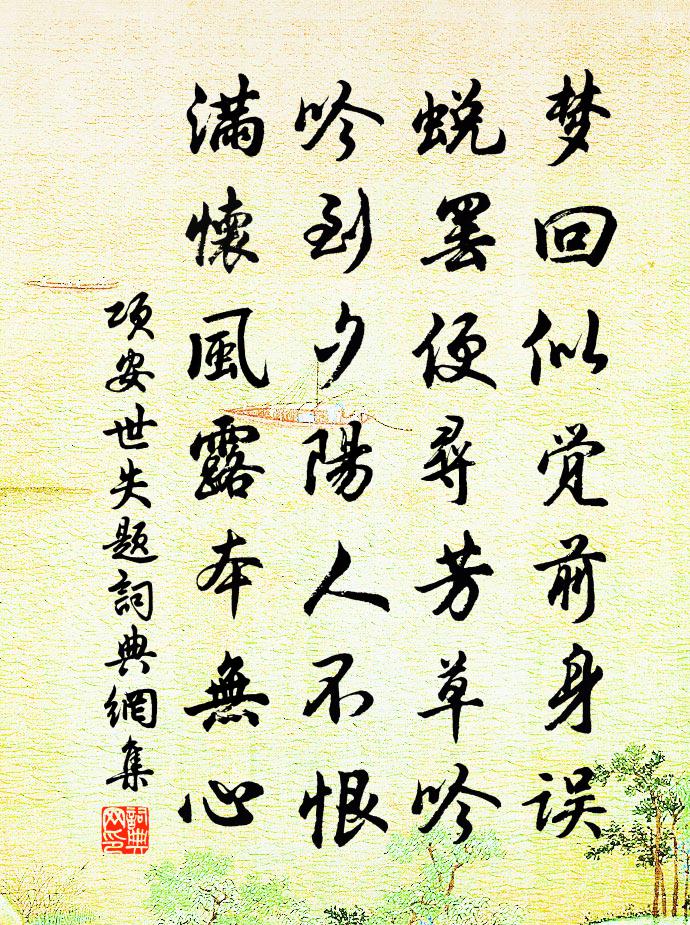 梦回似觉前身误
蜕罢便寻芳草吟
吟到夕陽人不恨
滿懷風露本無心
项安世失题詞典網集
詞典网印